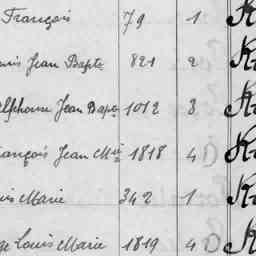 François 79 1
Jean Bapte 821 2
Alphonse Jean Bapte 1012 3
François Jean Mie 1818 4 D
Marie 342 1
Louis Marie 1819 4 D